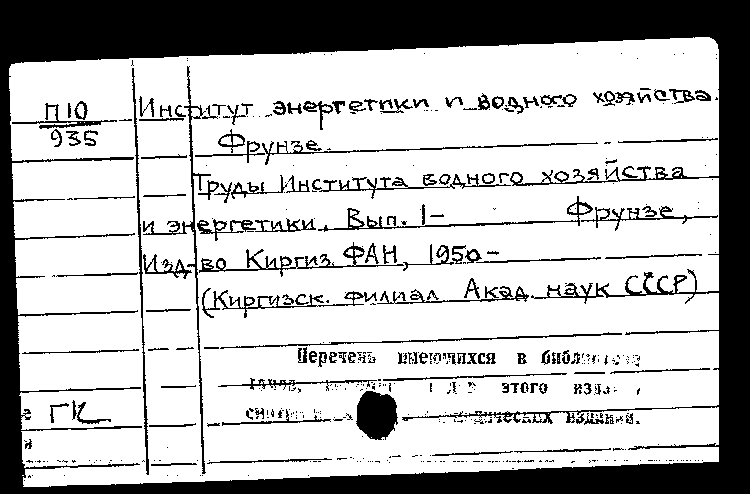 П10
935
Институт энергетики и водного хозяйства.
Фрунзе.
Труды Института водного хозяйства
и энергетики. Вып. 1- Фрунзе,
Изд-во Киргиз. ФАН, 1950-
(Киргизск. филиал Акад. наук СССР)
Перечень имеющихся в
этого
изданий.
ГК